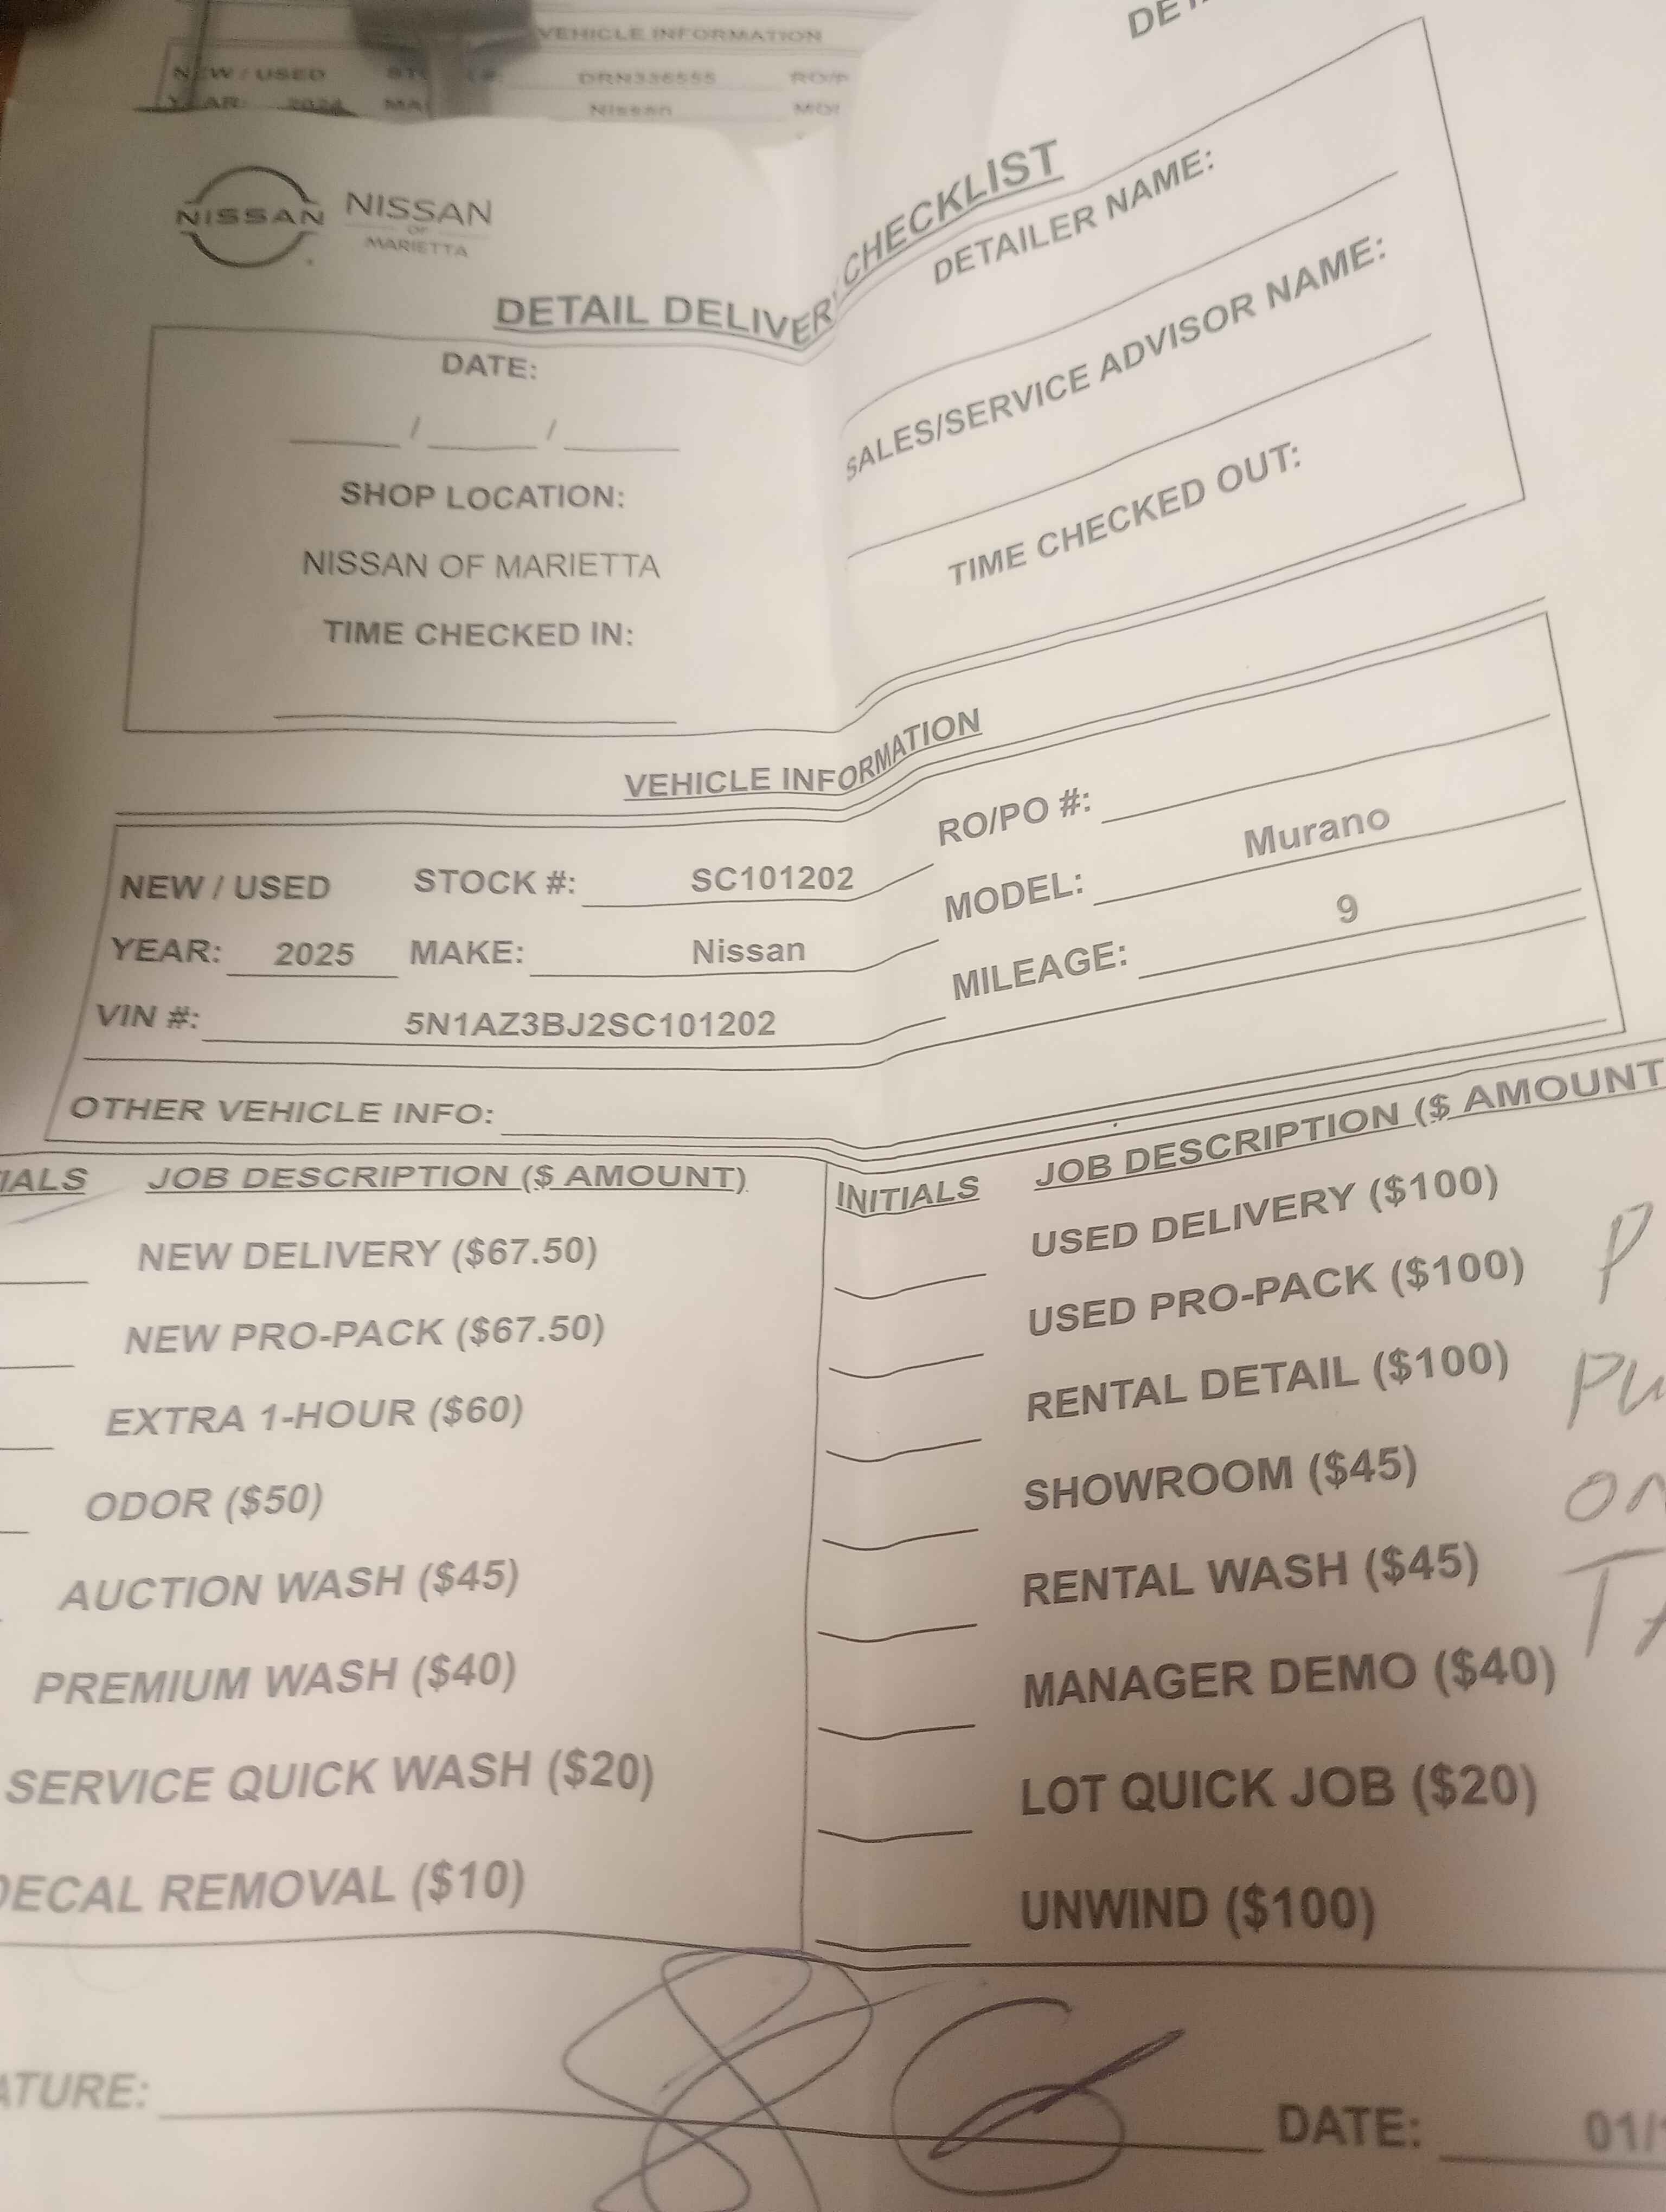 VEHICLE INFORMATION
NEW / USED DRN336555 RO/P
YEAR: 2024 MA Nissan MO
NISSAN
NISSAN
OF
MARIETTA
DETAIL DELIVERY CHECKLIST
DATE:
/ /
SHOP LOCATION:
NISSAN OF MARIETTA
TIME CHECKED IN:
DETAILER NAME:
SALES/SERVICE ADVISOR NAME:
TIME CHECKED OUT:
VEHICLE INFORMATION
NEW / USED STOCK #: SC101202 RO/PO #:
YEAR: 2025 MAKE: Nissan MODEL: Murano
VIN #: 5N1AZ3BJ2SC101202 MILEAGE: 9
OTHER VEHICLE INFO:
IALS JOB DESCRIPTION ($ AMOUNT)
NEW DELIVERY ($67.50)
NEW PRO-PACK ($67.50)
EXTRA 1-HOUR ($60)
ODOR ($50)
AUCTION WASH ($45)
PREMIUM WASH ($40)
SERVICE QUICK WASH ($20)
DECAL REMOVAL ($10)
INITIALS JOB DESCRIPTION ($ AMOUNT
USED DELIVERY ($100)
USED PRO-PACK ($100)
RENTAL DETAIL ($100)
SHOWROOM ($45)
RENTAL WASH ($45)
MANAGER DEMO ($40)
LOT QUICK JOB ($20)
UNWIND ($100)
P
PU
ON
TA
ATURE: DATE: 01/